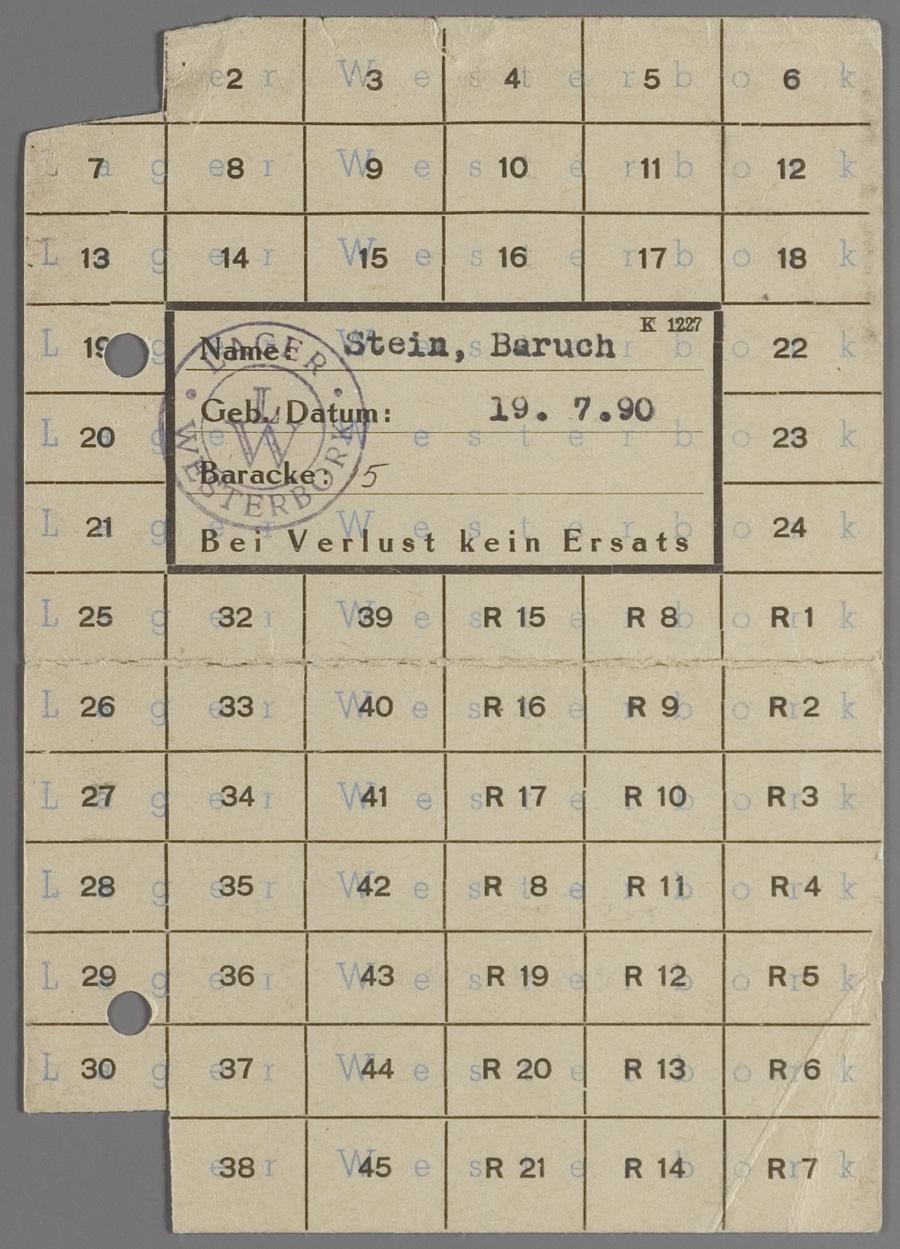 2 3 4 5 6
7 8 9 10 11 12
13 14 15 16 17 18
19 22
20 23
21 24
K 1227
Name: Stein, Baruch
Geb. Datum: 19. 7.90
Baracke: 5
Bei Verlust kein Ersats
LAGER WESTERBORK
LW
25 32 39 R 15 R 8 R 1
26 33 40 R 16 R 9 R 2
27 34 41 R 17 R 10 R 3
28 35 42 R 8 R 11 R 4
29 36 43 R 19 R 12 R 5
30 37 44 R 20 R 13 R 6
38 45 R 21 R 14 R 7
er Westerbork
Lager Westerbork
Lager Westerbork
Lager Westerbork
Lager Westerbork
Lager Westerbork
Lager Westerbork
Lager Westerbork
Lager Westerbork
Lager Westerbork
Lager Westerbork
Lager Westerbork
er Westerbork